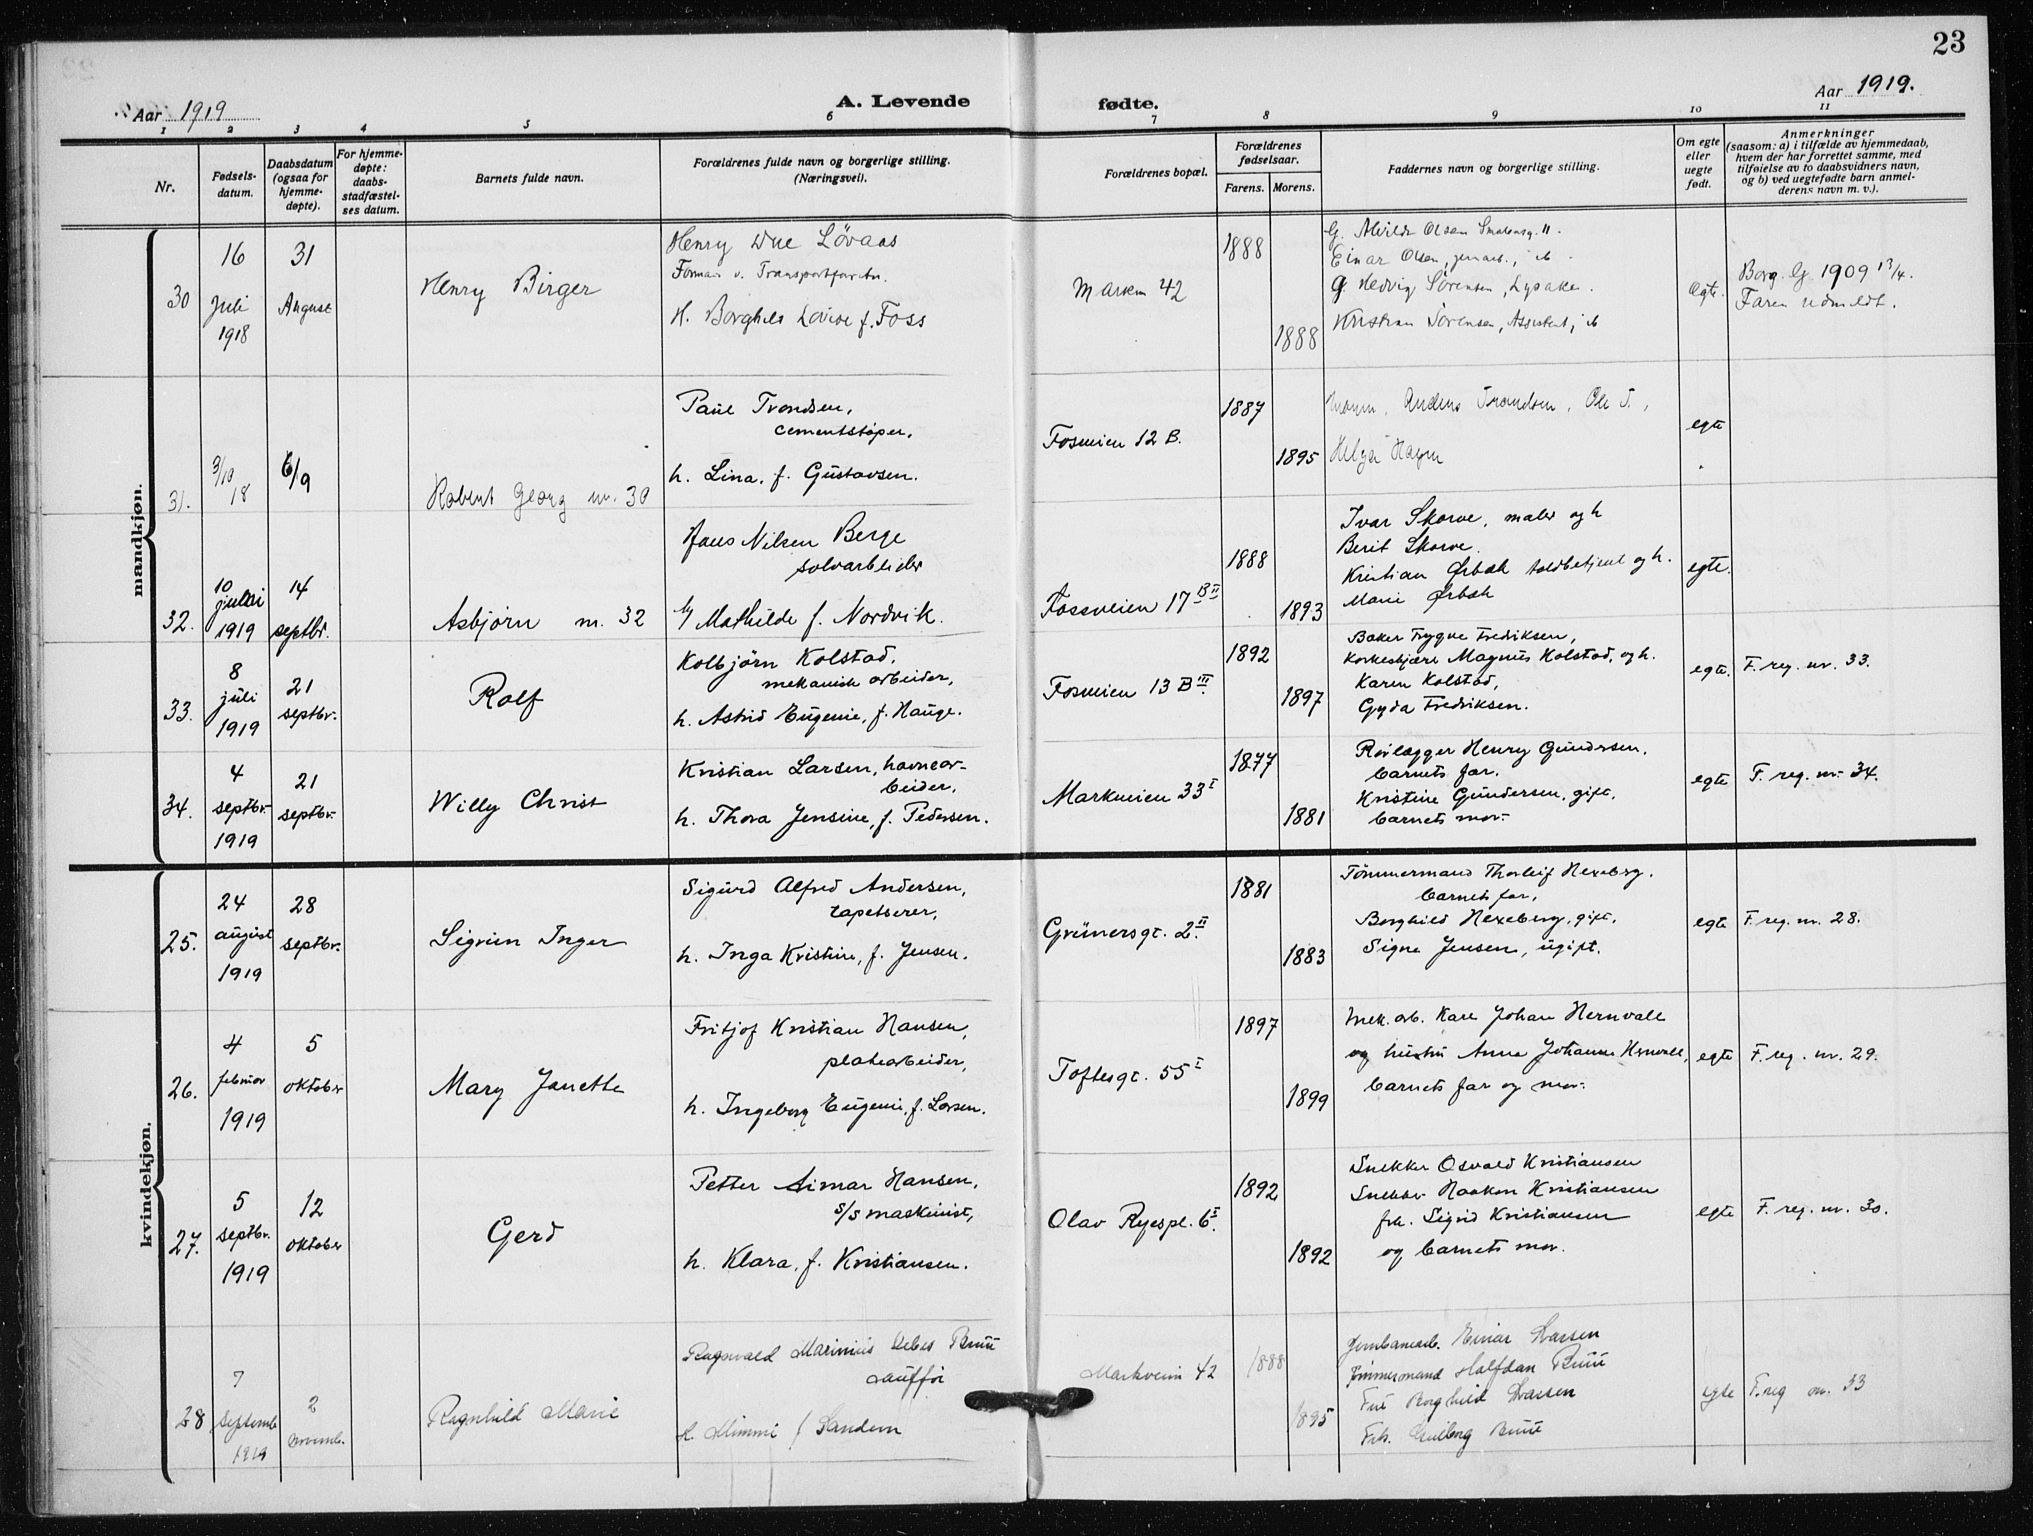 23
Aar 1919
A. Levende
fødte.
Aar 1919.
1 2 3 4 5 6 7 8 9 10 11
Nr.
Fødsels-
datum.
Daabsdatum
(ogsaa for
hjemme-
døpte).
For hjemme-
døpte:
daabs-
stadfæstel-
ses datum.
Barnets fulde navn.
Forældrenes fulde navn og borgerlige stilling.
(Næringsvei).
Forældrenes bopæl.
Forældrenes
fødselsaar.
Farens. Morens.
Faddernes navn og borgerlige stilling.
Om egte
eller
uegte
født.
Anmerkninger
(saasom: a) i tilfælde av hjemmedaab,
hvem der har forrettet samme, med
tilføielse av to daabsvidners navn,
og b) ved uegtefødte barn anmel-
derens navn m. v.).
mandkjøn.
30
16
Juli
1918
31
August
Henry Birger
Henry Due Lövaas
Forman v. Transportforetn.
H. Borghild Lovise f. Foss
Markvn 42
1888
1888
G. Alvilde Olsen Smalensg. 11.
Einar Olsen
G. Hedvig Sørensen, Lysaker.
Kristian Sørensen, Assistent,
egte.
Borg. Vg. 1909 13/4.
Faren udmeldt.
31.
3/10
18
6/9
Robert Georg nr. 30
Paul Trondsen,
cementstøper,
h. Lina, f. Gustavsen.
Fosveien 12 B.
1887
1895
Anders Trondsen, Ole T.,
Helga Hagen
egte
32.
10
juli
1919
14
septbr.
Asbjørn nr. 32
Hans Nilsen Berge
sølvarbeider
h/ Mathilde f. Nordvik.
Fossveien 17 B II
1888
1893
Ivar Skorve, maler og h
Berit Skorve.
Kristian Ørbæk toldbetjent og h.
Marie Ørbæk
egte.
33.
8
juli
1919
21
septbr.
Rolf
Kolbjörn Kolstad,
mekanisk arbeider,
h. Astrid Eugenie, f. Hauge.
Fosveien 13 B III
1892
1897
Baker Trygve Fredriksen,
Korkeskjærer Magnus Kolstad, og h.
Karen Kolstad,
Gyda Fredriksen.
egte.
F. reg. nr. 33.
34.
4
septbr.
1919
21
septbr.
Willy Christ
Kristian Larsen, havnear-
beider,
h. Thora Jensine, f. Pedersen.
Markveien 33 I
1877
1881
Rørlægger Henry Gundersen,
barnets far.
Kristine Gundersen, gift,
barnets mor.
egte
F. reg. nr. 34.
kvindekjøn.
25.
24
august
1919
28
septbr.
Sigrun Inger
Sigurd Alfred Andersen,
tapetserer,
h. Inga Kristine, f. Jensen.
Grünersgt. 2 II.
1881
1883
Tömmermand Thorleif Hexeberg,
barnets far,
Borghild Hexeberg, gift,
Signe Jensen, ugift.
egte
F. reg. nr. 28.
26.
4
februar
1919
5
oktober
Mary Janette
Fritjof Kristian Hansen,
platearbeider,
h. Ingeborg Eugenie, f. Larsen.
Toftesgt. 55 I
1897
1899
Mek. arb. Kare Johan Hernvall
og hustru Anna Johanne Hernvall,
barnets far og mor.
egte
F. reg. nr. 29.
27.
5
septbr.
1919
12
oktober
Gerd
Petter Aimar Hansen,
s/s maskinist,
h. Klara, f. Kristiansen.
Olav Ryespl. 6 I.
1892
1892
Snekker Osvald Kristiansen
Snekker Haakon Kristiansen
frk. Sigrid Kristiansen
og barnets mor.
egte
F. reg. nr. 30.
28
7
septemb
1919
2
novemb.
Ragnhild Marie
Ragnvald Marinius Bruu
H. Mimmi f Sandem
Markveien 42
1888
1895
Jernbanearb. Einar Larsen
Tömmermand Halfdan Bruu
Fru Borghild Larsen
Frk. Bruu
egte
F. reg nr. 33